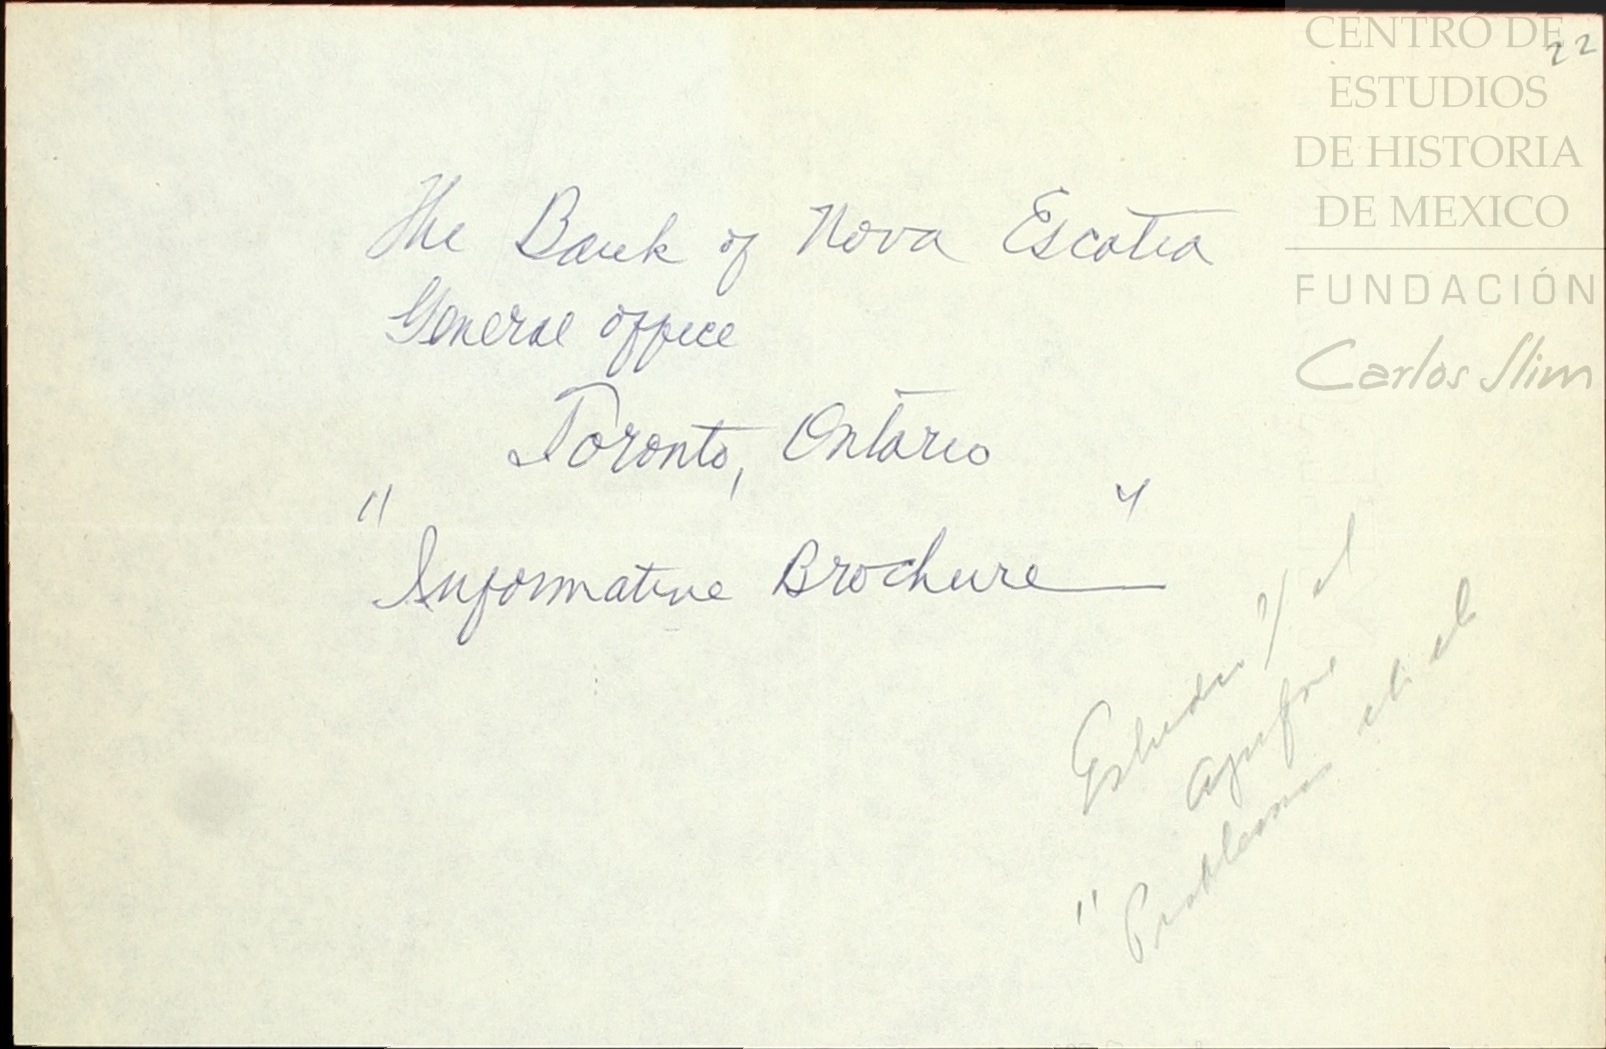 CENTRO DE
ESTUDIOS
DE HISTORIA
DE MEXICO
FUNDACIÓN
Carlos Slim
22
The Bank of Nova Escotia
General office
Toronto, Ontario
"Informative Brochure"
Estudio
el
" Problemas
el